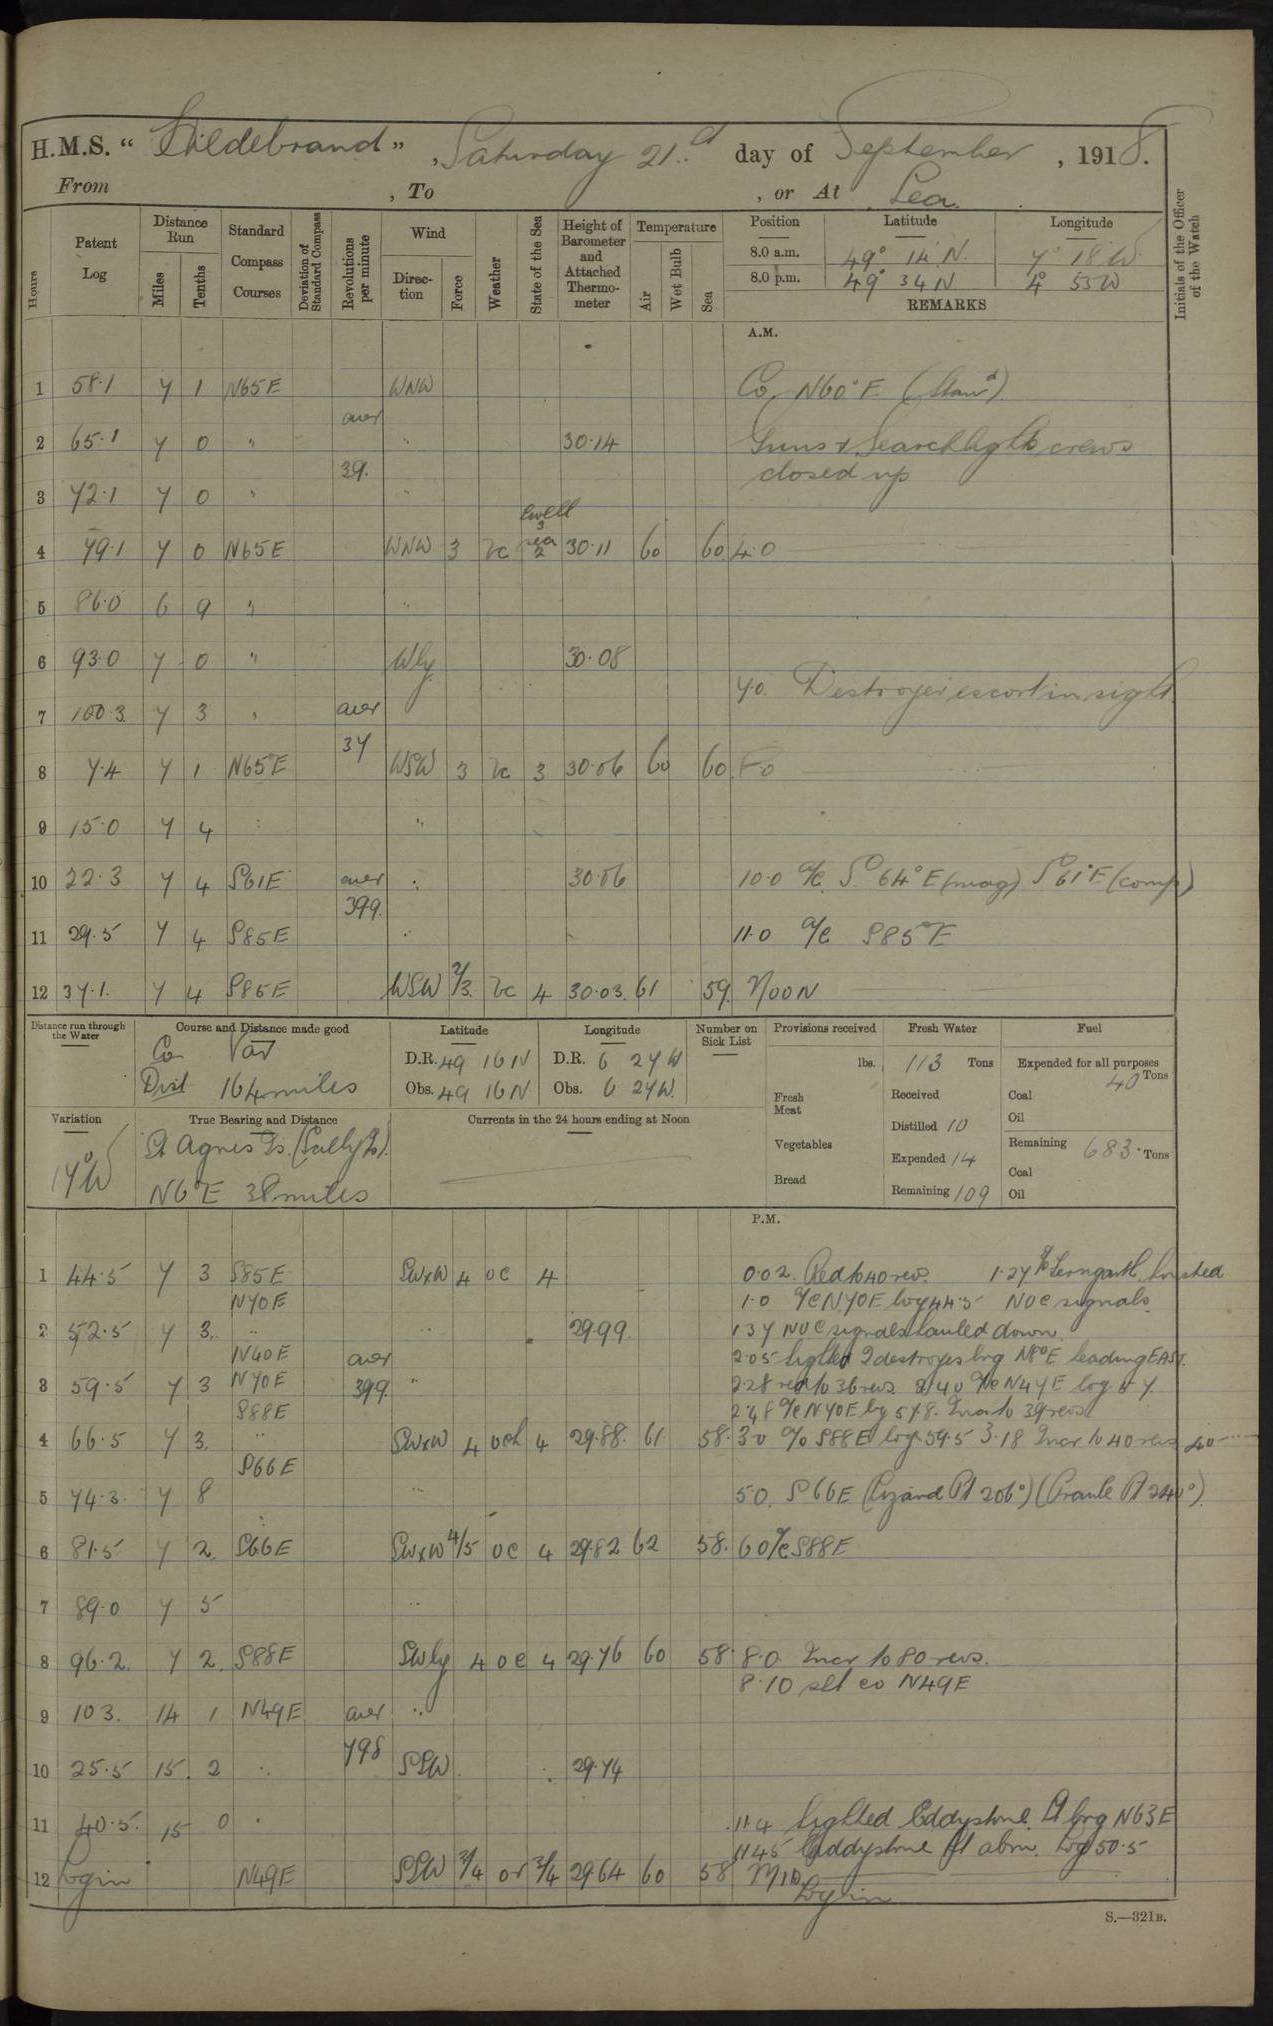 H.M.S. “ Hildebrand ” , Saturday 21st day of September , 1918.
From , To , or At Sea.
Hours Patent Log Distance Run Miles Tenths Standard Compass Courses Deviation of Standard Compass Revolutions per minute Wind Direction Force Weather State of the Sea Height of Barometer and Attached Thermometer Temperature Air Wet Bulb Sea Position Latitude Longitude Initials of the Officer of the Watch
8.0 a.m. 49° 14 N. 7 18 W
8.0 p.m. 49° 34 N 4° 53 W
REMARKS
A.M.
1 58.1 7 1 N65E WNW Co N60°E (Stand)
aver
2 65.1 7 0 " " 30.14 Guns & Searchlight crews
39. closed up
3 72.1 7 0 " "
swell 3
4 79.1 7 0 N65E WNW 3 bc sea 2 30.11 60 60 4.0
5 86.0 6 9 " "
6 93.0 7 0 " Wly 30.08
7.0. Destroyer escort in sight
7 100.3 7 3 " aver
37
8 7.4 7 1 N65°E WSW 3 bc 3 30.06 60 60 8.0
9 15.0 7 4 : "
10 22.3 7 4 S61E aver " 30.06 10.0 a/c S 64°E (mag) S 61°E (comp)
399.
11 29.5 7 4 S85E " 11.0 a/c S85°E
12 37.1. 7 4 S85E WSW 2/3. bc 4 30.03. 61 59. NOON
Distance run through the Water Course and Distance made good Latitude Longitude Number on Sick List Provisions received Fresh Water Fuel
Co Var D.R. 49 16 N D.R. 6 27 W lbs. 113 Tons Expended for all purposes
Dist 164 miles Obs. 49 16 N Obs. 6 27 W. Fresh Meat Received Coal 40 Tons
Distilled 10 Oil
Variation True Bearing and Distance Currents in the 24 hours ending at Noon Vegetables Expended 14 Remaining 683. Tons
17°W St Agnes Is. (Scilly Is). Bread Remaining 109 Coal
N6°E 38 miles Oil
P.M.
1 44.5 7 3 S85E SWxW 4 oc 4 0.02. Red to 40 revs. 1.27 hoisted
N70E 1.0 a/c N70E log 44.5 NUC signals.
2 52.5 7 3. " " 29.99. 1.37 NUC signals hauled down.
N40E aver 2.05 Sighted 2 destroyers brg N80E leading EAST.
3 59.5 7 3 N70E 399. " 2.28 red to 36 revs 2.40 a/c N47E log 57.
S88E 2.48 a/c N70E log 57.8. Incr to 39 revs.
4 66.5 7 3. " SWxW 4 4 29.88. 61 58. 3.0 a/c S88E log 59.5 3.18 Incr to 40 revs 40
S66E
5 74.3. 7 8 " 5.0. S66E (Lizard Pt 206°) (Prawle Pt 240°).
6 81.5 7 2. S66E SWxW 4/5 oc 4 29.82 62 58. 6.0 a/c S88E
7 89.0 7 5 "
8 96.2. 7 2. S88E SWly 4 oc 4 29.76 60 58 8.0 Incr to 80 revs.
8.10 set co N49E
9 103. 14 1 N49E aver "
798
10 25.5 15. 2 " SSW. 29.74
11 40.5. 15 0 " 11.4 Sighted Eddystone Lt brg N63E
11.45 Eddystone Lt abm. Log 50.5
12 Log in N49E SSW 3/4 or 3/4 29.64 60 58 MID.
Log in
S.—321B.